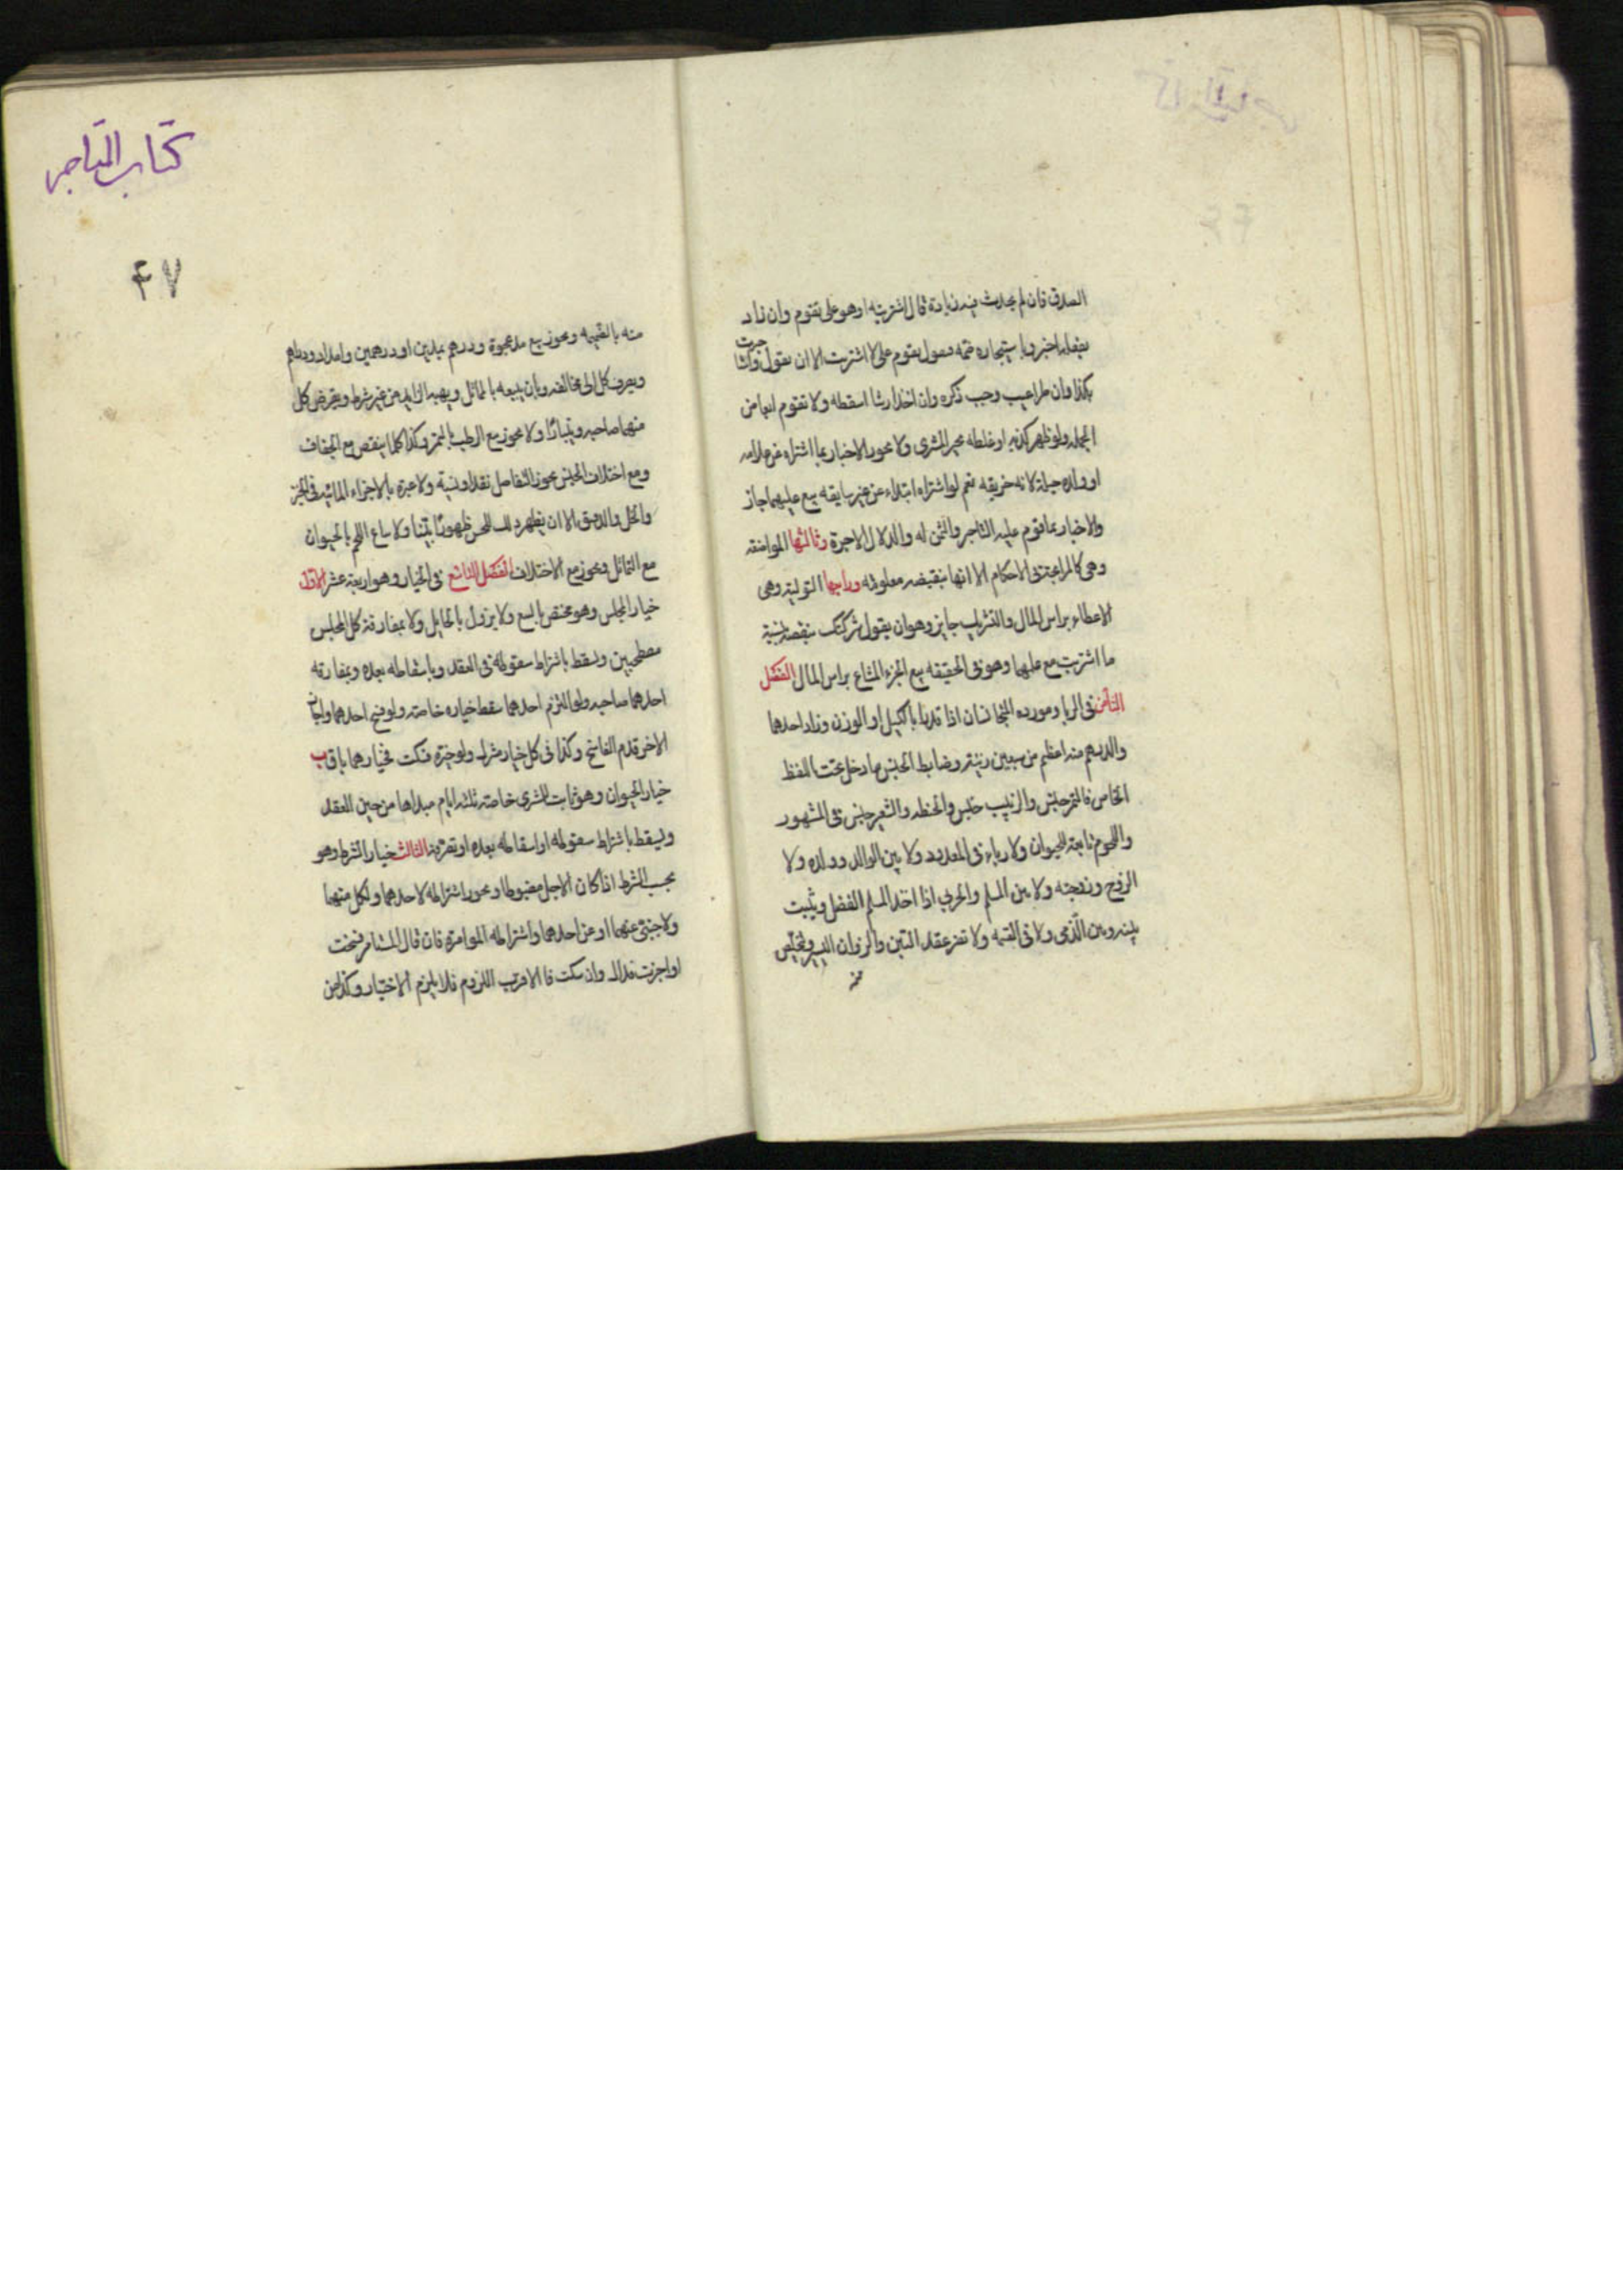 الصدق فان لم يحدث فيه زيادة قال اشتريته او هو على تقوم وان زاد
بفعله اخبر وباستيجاره ضمه فيقول تقوم على لا اشتريت الا ان يقول واستاجرت
بكذا وان طرا عيب وجب ذكره وان اخذ ارشا اسقطه ولا تقوم ابعاض
الجمله ولو ظهر كذبه او غلطه تخير المشترى ولا يجوز الاخبار بما اشتراه من غلامه
او ولده حيلة لانه خديعه نعم لو اشتراه ابتداء من غير سابقه بيع عليهما جاز
والاخبار بما قوم عليه التاجر والثمن له والدلال الاجرة وثالثها المواضعه
وهى كالمرابحة فى الاحكام الا انها بنقيصه معلومه ورابعها التولية وهى
الاعطاء براس المال والتشريك جايز وهو ان يقول شركتك بنصفه بنسبة
ما اشتريت مع علمهما وهو فى الحقيقه بيع الجزء المشاع براس المال الفصل
الثامن فى الربا ومورده المتجانسان اذا قدرا بالكيل او الوزن وزاد احدهما
والدرهم منه اعظم من سبعين زنية وضابط الجنس ما دخل تحت اللفظ
الخاص فالتمر جنس والزبيب جنس والحنطه والشعير جنس فى المشهور
واللحوم تابعة للحيوان ولا رباء فى المعدود ولا بين الوالد وولده ولا
الزوج وزوجته ولا بين المسلم والحربى اذا اخذ المسلم الفضل ويثبت
بينه وبين الذمى ولا فى القسمه ولا تضر عقد التبن والزوان اليسير ويتخلص
منه
كتاب المتاجر
۴۷
منه بالقيمه ويجوز بيع مد عجوة ودرهم بمدين او درهمين وامداد ودراهم
ويصرف كل الى مخالفه وبان يبيعه بالمماثل ويهبه الزايد من غير شرط ويقرض كل
منهما صاحبه ويتبارئا ولا يجوز بيع الرطب بالتمر وكذا كلما ينقص مع الجفاف
ومع اختلاف الجنس يجوز التفاضل نقدا ونسية ولا عبرة بالاجزاء المائية فى الخبز
والخل والدقيق الا ان يظهر ذلك للحس ظهورا بينا ولا يباع اللحم بالحيوان
مع التماثل ويجوز مع الاختلاف الفصل التاسع فى الخيار وهو اربعة عشر الاول
خيار المجلس وهو مختص بالبيع ولا يزول بالحايل ولا بمفارقة كل المجلس
مصطحبين ويسقط باشتراط سقوطه فى العقد وباسقاطه بعده وبمفارقه
احدهما صاحبه ولو التزم احدهما سقط خياره خاصة ولو فسخ احدهما واجاز
الاخر قدم الفاسخ وكذا فى كل خيار مشترك ولو خيره فسكت فخيارهما باق ب
خيار الحيوان وهو ثابت للمشترى خاصة ثلثه ايام مبداها من حين العقد
ويسقط باشتراط سقوطه او اسقاطه بعده او تصرفه الثالث خيار الشرط وهو
بحسب الشرط اذا كان الاجل مضبوطا ويجوز اشتراطه لاحدهما ولكل منهما
ولاجنبى عنهما او عن احدهما واشتراطه المؤامرة فان قال المستامر فسخت
او اجزت فذاك وان سكت فالاقرب اللزوم فلا يلزم الاختيار وكذا من